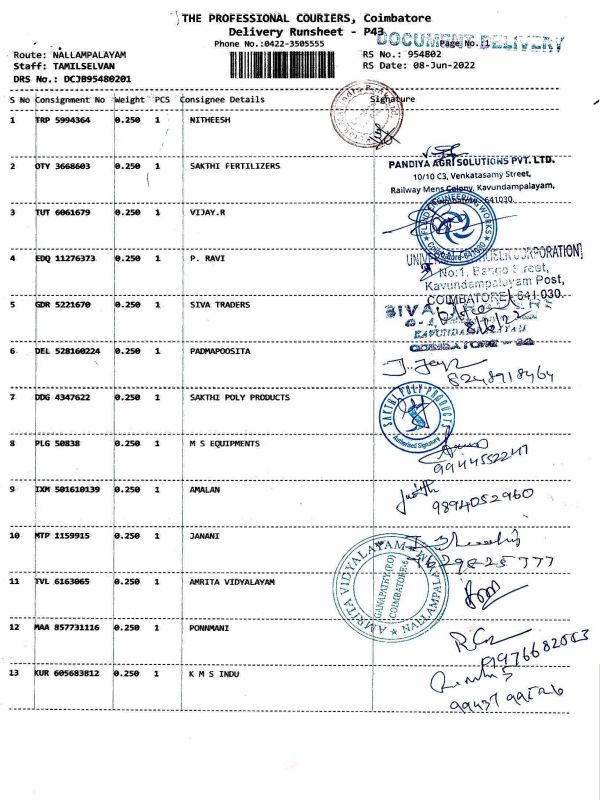 THE PROFESSIONAL COURIERS, Coimbatore
Delivery Runsheet - P43
DOCUMENT DELIVERY
Phone No.:0422-3505555
Page No.:1
Route: NALLAMPALAYAM
RS No.: 954802
Staff: TAMILSELVAN
RS Date: 08-Jun-2022
DRS No.: DCJB95480201
S No Consignment No Weight PCS Consignee Details Signature
1 TRP 5994364 0.250 1 NITHEESH
2 OTY 3668603 0.250 1 SAKTHI FERTILIZERS
PANDIYA AGRI SOLUTIONS PVT. LTD.
10/10 C3, Venkatasamy Street,
Railway Mens Colony, Kavundampalayam,
Coimbatore - 641030.
3 TUT 6061679 0.250 1 VIJAY.R
ENGINEERING WORKS
COIMBATORE-641030
4 EDQ 11276373 0.250 1 P. RAVI
CORPORATION
No:1,
Kavundampalayam Post,
COIMBATORE 641 030.
5 GDR 5221670 0.250 1 SIVA TRADERS
SIVA
8/6/22
COIMBATORE - 30
6 DEL 528160224 0.250 1 PADMAPOOSITA
8248918464
7 DDG 4347622 0.250 1 SAKTHI POLY PRODUCTS
SAKTHI POLY PRODUCTS
Authorised Signatory
8 PLG 50838 0.250 1 M S EQUIPMENTS
9944552247
9 IXM 501610139 0.250 1 AMALAN
9894052960
10 MTP 1159915 0.250 1 JANANI
11 TVL 6163065 0.250 1 AMRITA VIDYALAYAM
AMRITA VIDYALAYAM
GANAPATHY (P.O)
COIMBATORE-6
NALLAMPALAYAM
12 MAA 857731116 0.250 1 PONNMANI
13 KUR 605683812 0.250 1 K M S INDU